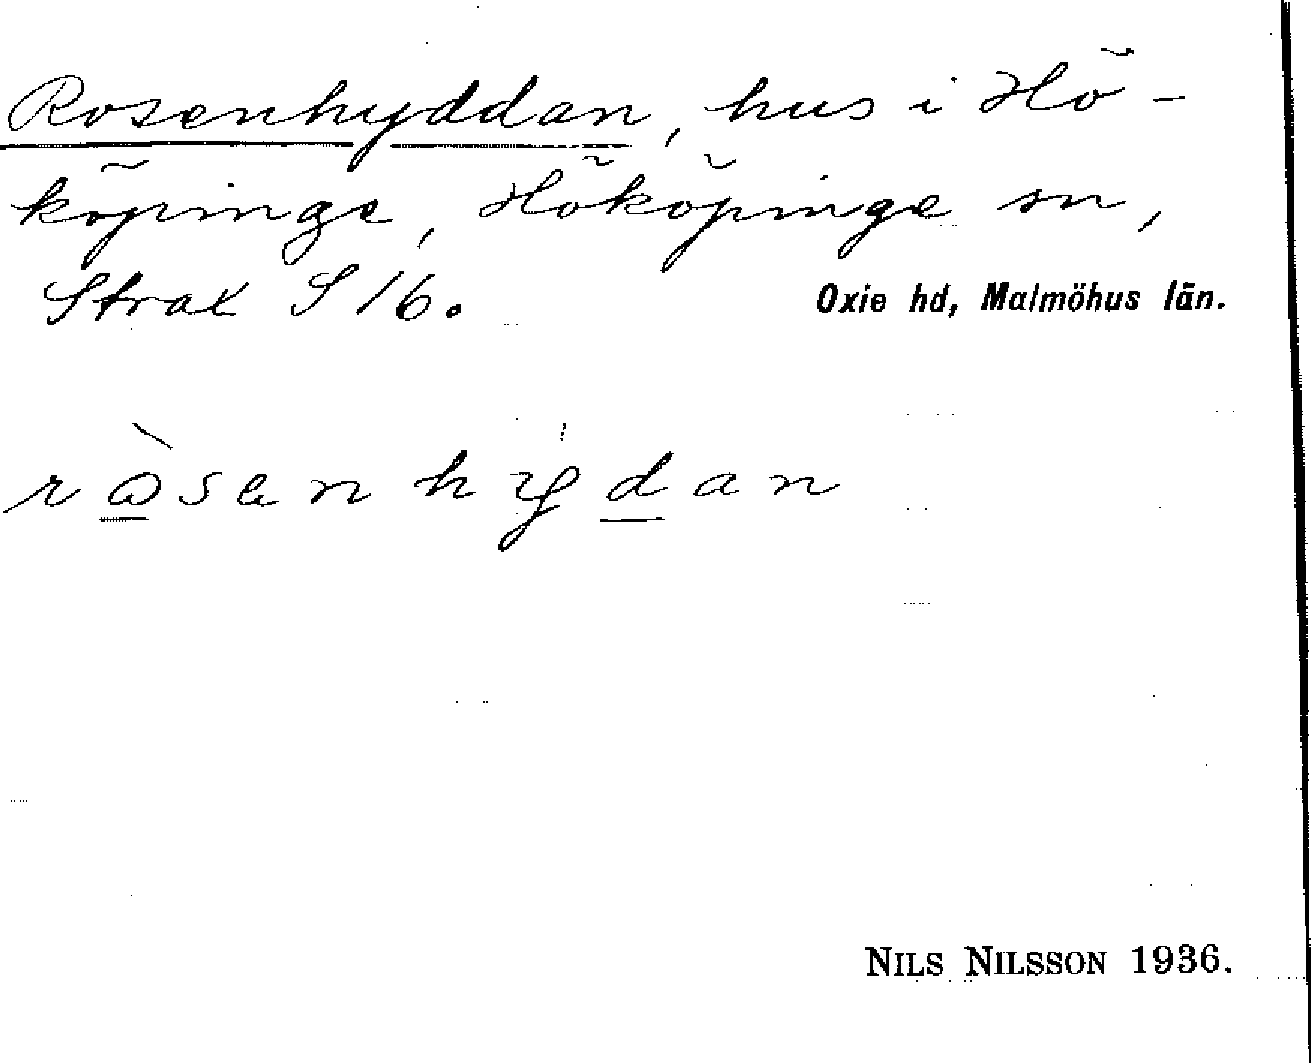 Rosenhyddan, hus i Hö-
köpinge, Hököpinge sn,
Strax S 16. Oxie hd, Malmöhus län.
ròsenhýdan
NILS NILSSON 1936.